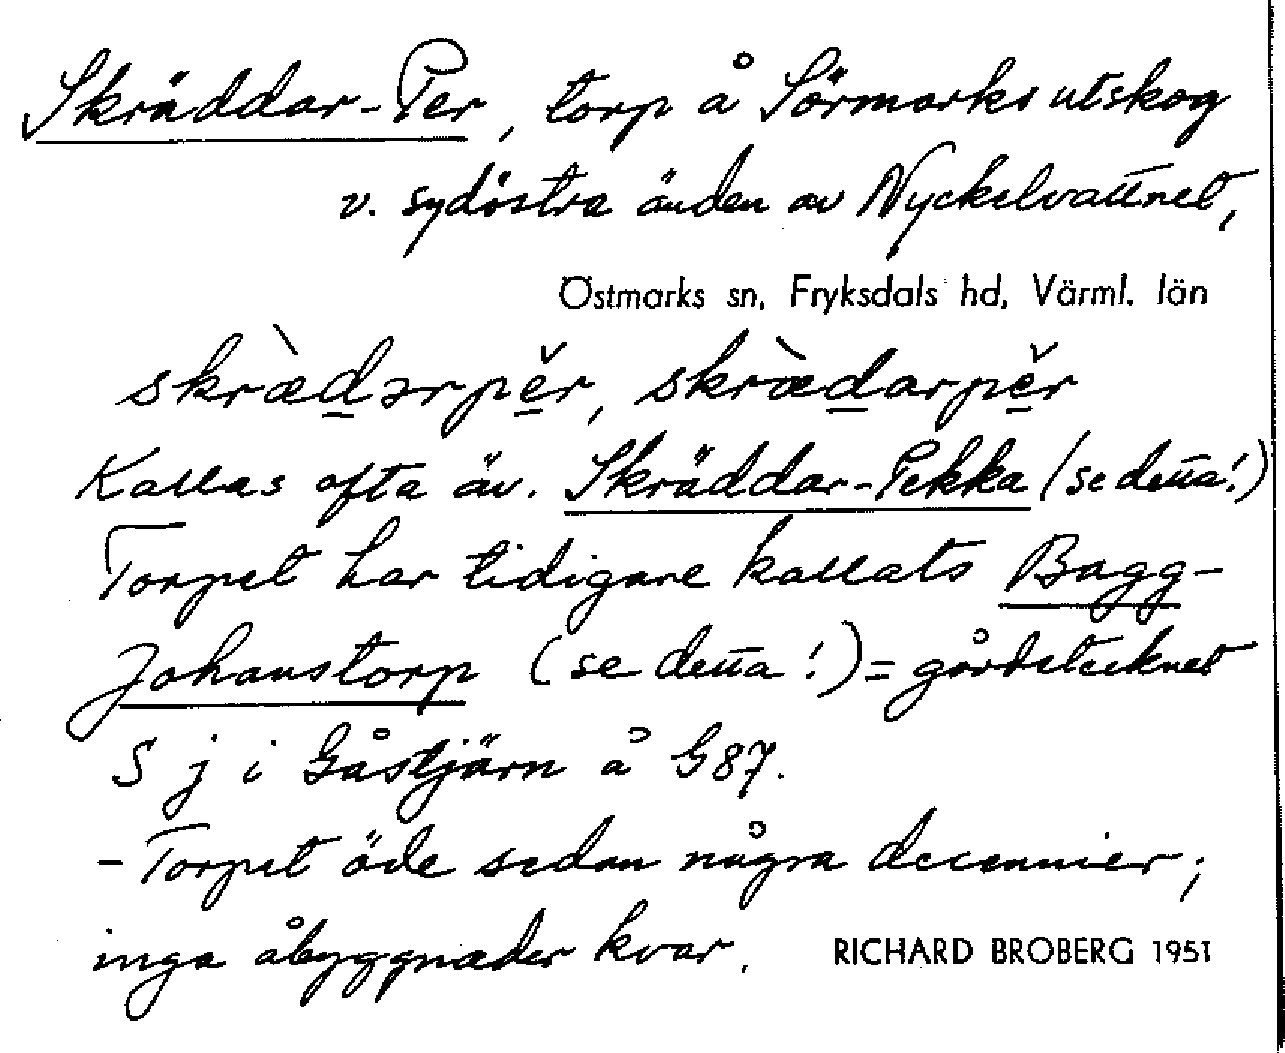 Skräddar-Per, torp å Sörmarks utskog
v. sydöstra änden av Nyckelvattnet,
Östmarks sn, Fryksdals hd, Värml. län
skræ̀d̲ərpě̲r, skræ̀d̲arpě̲r
Kallas ofta äv. Skräddar-Pekka (se detta!)
Torpet har tidigare kallats Bagg-
Johanstorp (se detta!) = gårdstecknet
S j i Gåstjärn å G87.
- Torpet öde sedan några decennier;
inga åbyggnader kvar.
RICHARD BROBERG 1951